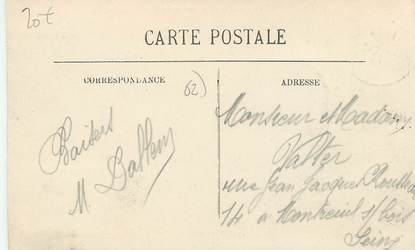 20€
CARTE POSTALE
CORRESPONDANCE
ADRESSE
62)
Baisers
M
Monsieur et Madame
Valter
rue Jean Jacques Rousseau
14 a Montreuil s/ bois
Seine